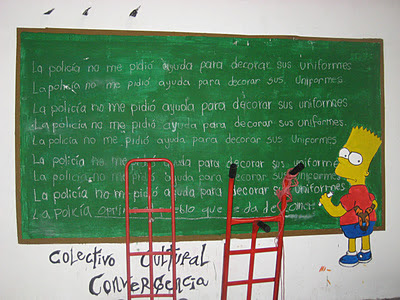 La policía no me pidió ayuda para decorar sus uniformes
La policía no me pidió ayuda para decorar sus uniformes
La policía no me pidió ayuda para decorar sus uniformes
La policía no me pidió ayuda para decorar sus uniformes.
La policía no me pidió ayuda para decorar sus Uniformes
La policía no me pidió ayuda para decorar sus uniformes
La policía no me pidió ayuda para decorar sus uniformes
La policía no me pidió ayuda para decorar sus uniformes
La policía que
Colectivo Cultural
Convergencia